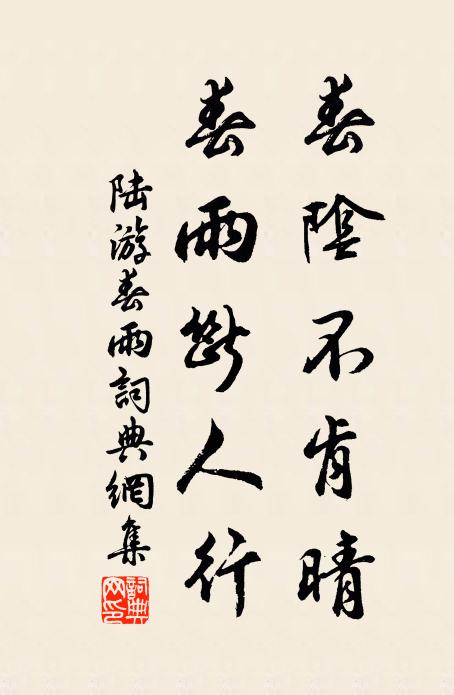 春陰不肯晴
春雨斷人行
陆游春雨詞典網集
詞典網印